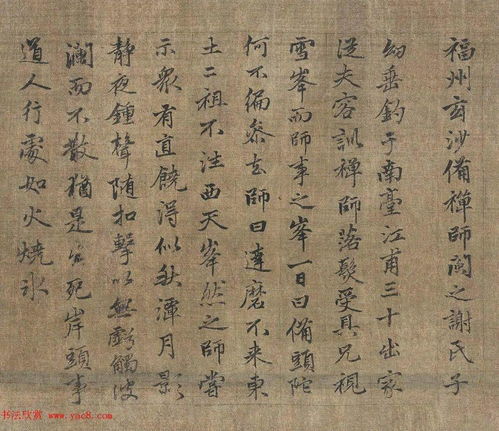 福州玄沙備禪師閩之謝氏子
幼垂釣于南臺江甫三十出家
從夫容訓禪師落髮受具兄視
雪峯而師事之峯一日曰備頭陀
何不徧參去師曰達磨不来東
土二祖不往西天峯然之師嘗
示衆有直饒得似秋潭月影
静夜鍾聲随扣擊以無虧觸波
瀾而不散猶是生死岸頭事
道人行處如火燒冰
书法欣赏 www.yac8.com